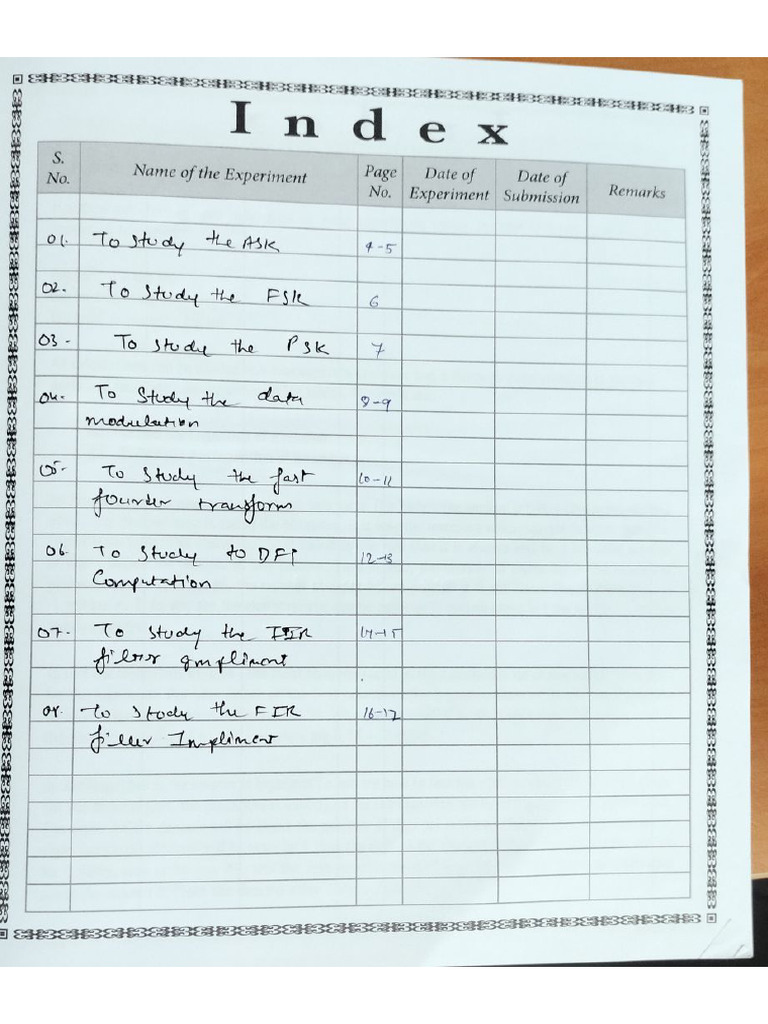 Index
S. No. Name of the Experiment Page No. Date of Experiment Date of Submission Remarks
01. To study the ASK 4-5
02. To study the FSK 6
03 - To study the PSK 7
04. To study the data 8-9
modulation
05- To study the fast 10-11
fourier transform
06. To study to DFT 12-13
Computation
07- To study the IIR 14-15
filter impliment
08. To study the FIR 16-17
filter Impliment